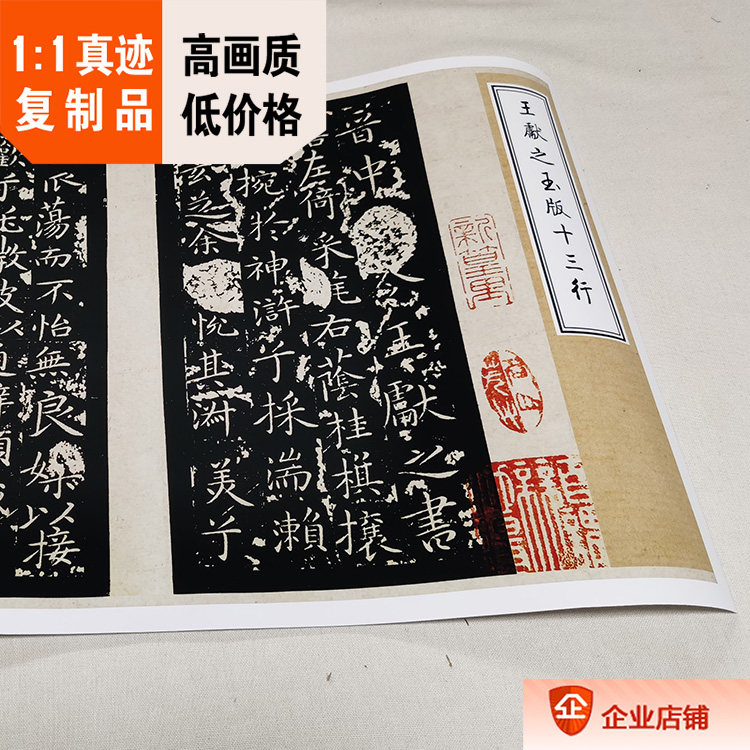 1:1真迹
复制品
高画质
低价格
王獻之玉版十三行
晉中
王獻之書
左倚采旄右蔭桂旗攘
捥於神滸兮採湍瀨
玄芝余悅其淑美兮
蕩而不怡無良媒以接
企业店铺